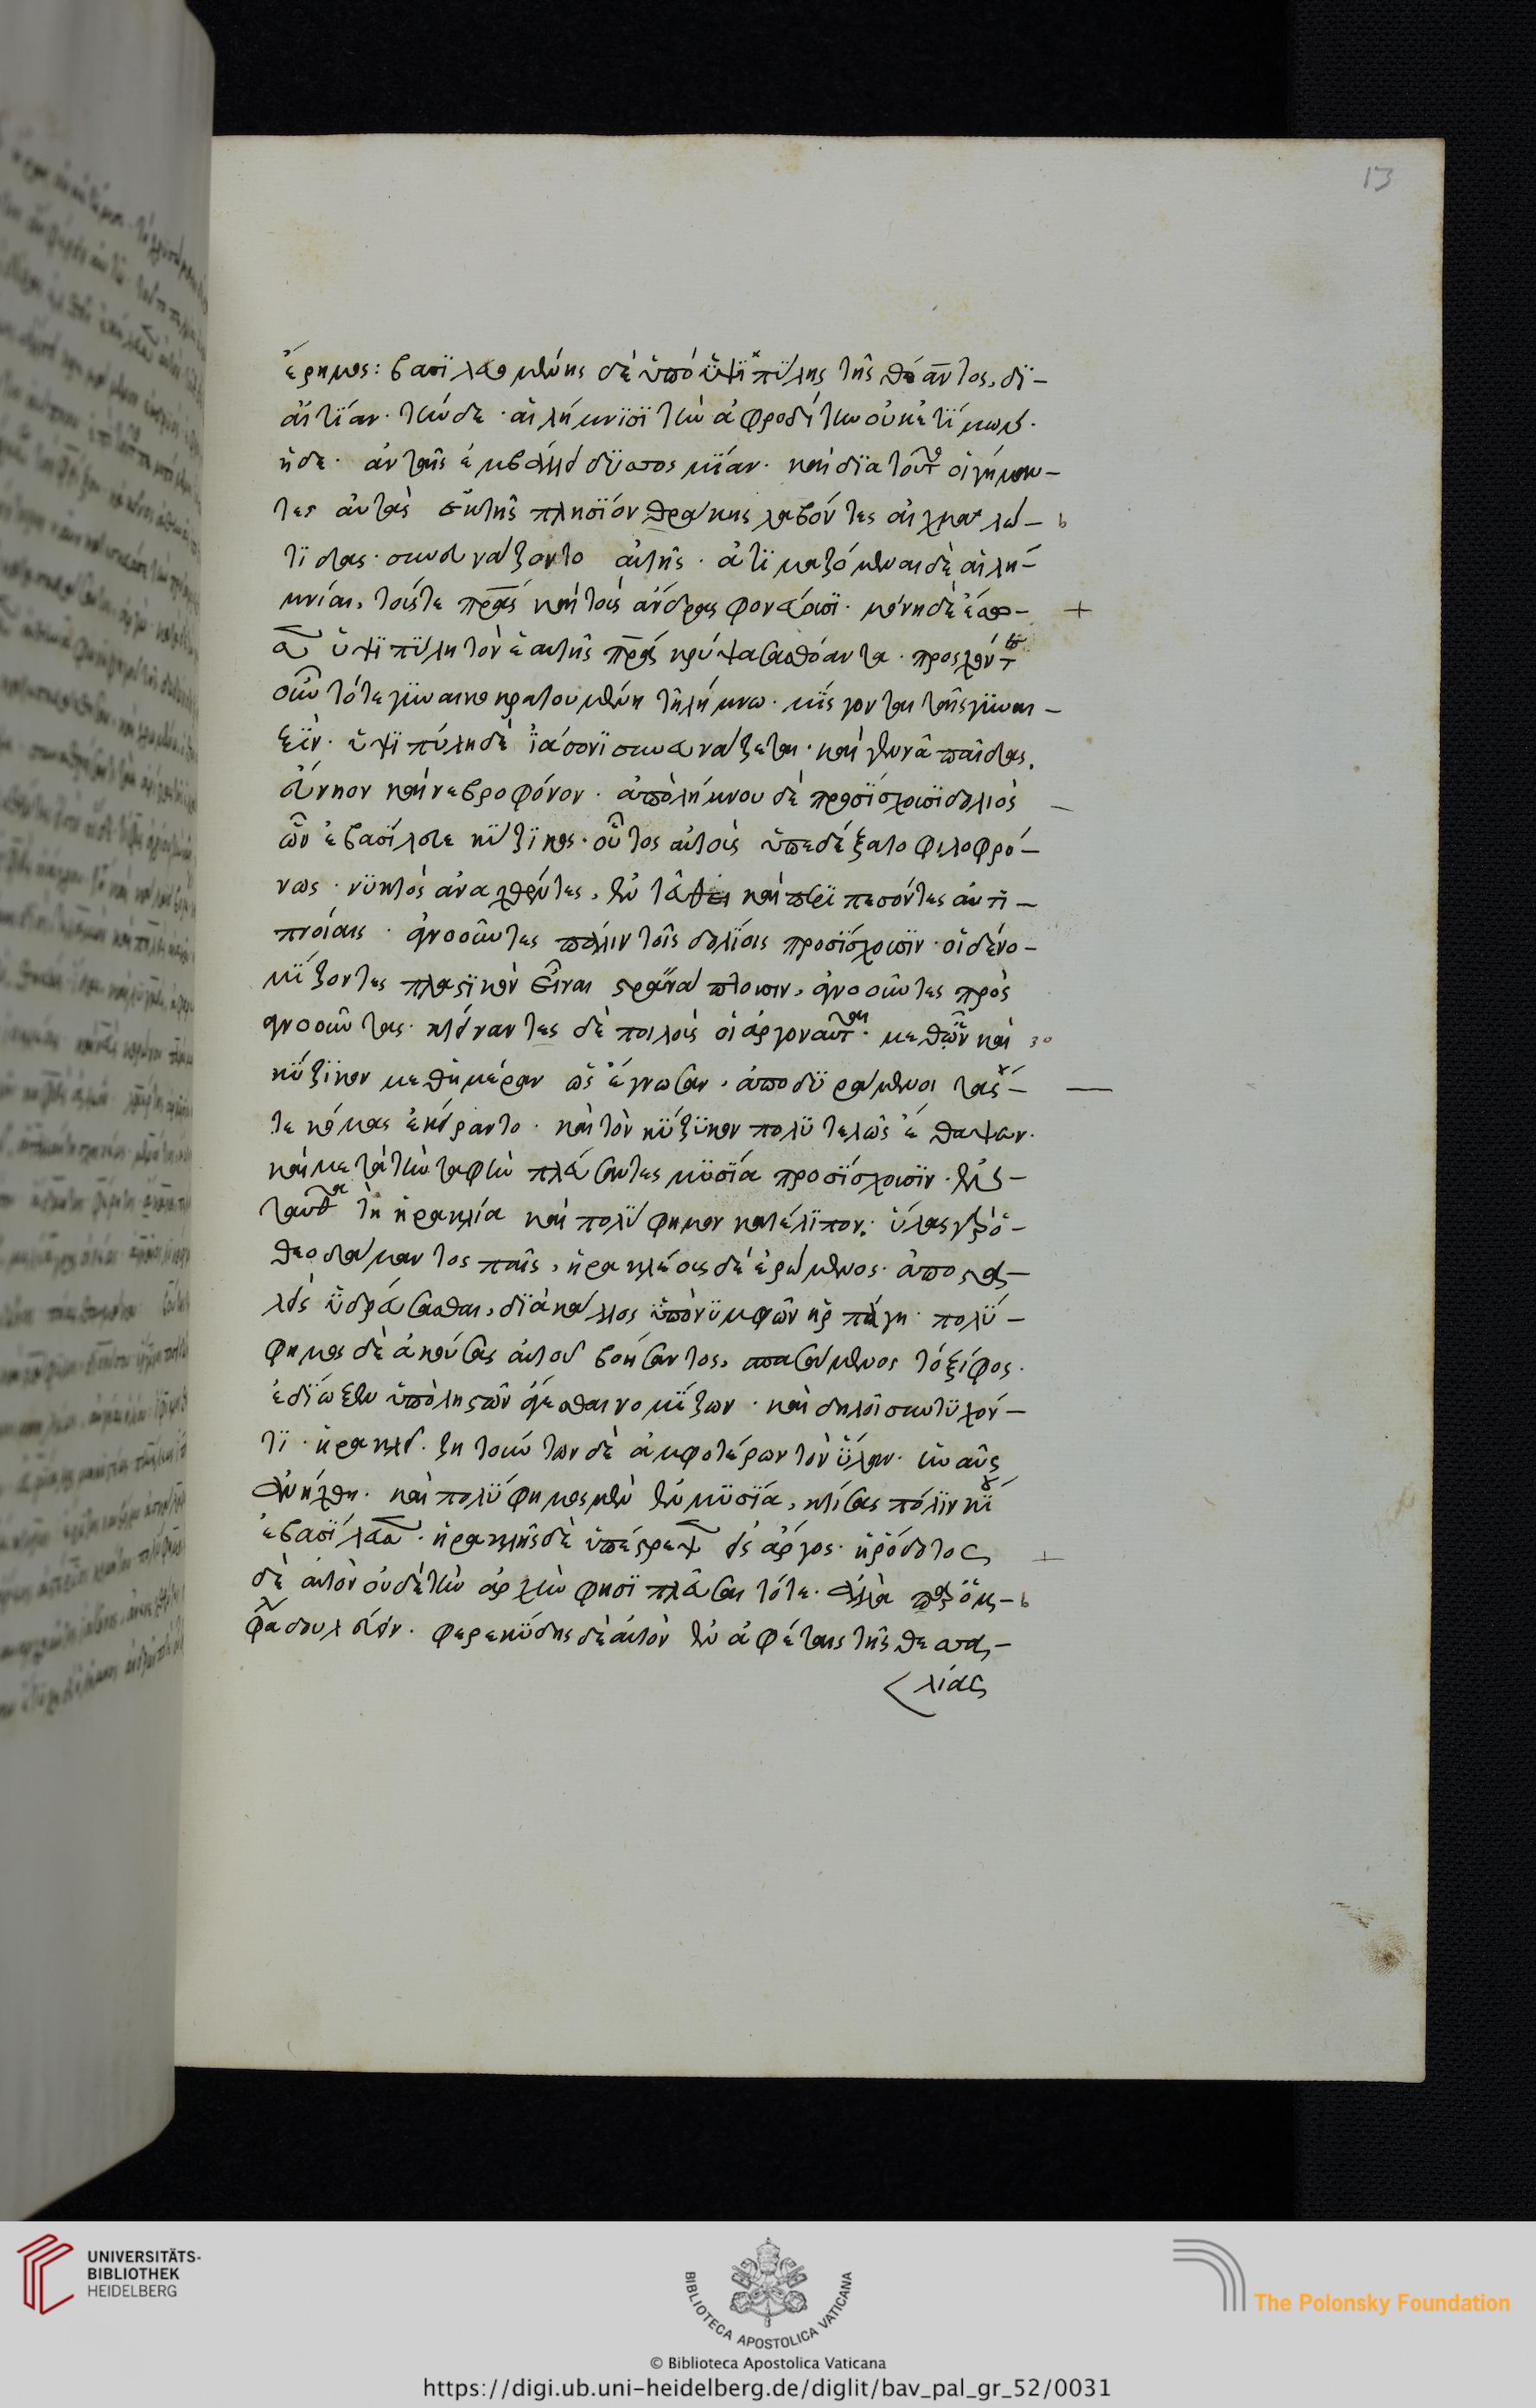 13
ἔρημος: βασϊλευομένης δὲ ὑπὸ ὑψϊπύλης τῆς θόαντος, δϊ-
αἰτΐαν τήνδε. αἱ λήμνϊσϊ τὴν ἀφροδίτην οὐκ ἐτΐμων.
ἡ δε. αὐταῖς ἐμβάλλει δϋσοσμΐαν. καὶ δϊα τοῦτο οἱ γήμαν-
τες αὐτὰς ἐκ τῆς πλησΐον θράκης λαβόντες αἰχμαλω-
τΐδας. συνευνάζοντο αὐτῆς. ἀτϊμαζόμεναι δὲ αἱ λή-
μνίαι, τούς τε πρας καὶ τοὺς ἄνδρας φονεύουσϊ. μόνη δὲ ἔσω-
σεν ὑψϊπΰλη τὸν ἑαυτῆς πρα κρύψασα θόαντα. προσχόντες
οὖν τότε γϋναικοκρατουμένη τῆ λήμνω. μΐσγονται ταῖς γϋναι-
ξΐν. ὑψϊπύλη δὲ ἰάσονϊ συνευνάζεται. καὶ γεννᾶ παῖδας.
εὔνηον καὶ νεβροφόνον. ἀπὸ λήμνου δὲ προσΐσχουσϊ δολιὸς
ὧν ἐβασΐλευε κΰζϊκος. οὗτος αὐτοὺς ὑπεδέξατο φιλοφρό-
νως. νϋκτὸς ἀναχθέντες, ἐν ταθει καὶ περϊπεσόντες ἀντι-
πνοίαις. ἀγνοοῦντες πάλιν τοῖς δολΐοις προσΐσχουσϊν. οἱ δὲ νο-
μΐζοντες πλασϊκὸν εἶναι στρατόν πλουσιν, ἀγνοοῦντες πρὸς
ἀγνοοῦντας. κτείναντες δὲ πολλοὺς οἱ ἀργοναῦται. μεθ ὧν καὶ
κΰζϊκον μεθ ἡμέραν ὡς ἔγνωσαν, ἀποδϋράμενοι τάς
τε κόμας ἐκείραντο. καὶ τὸν κΰζϊκον πολϋτελῶς ἔθαψαν.
καὶ μετὰ τὴν ταφὴν πλεύσαντες μϋσΐα προσΐσχουσϊν. ἐν-
ταῦθα δὲ ἡρακλέα καὶ πολΰφημον κατέλϊπον. ὕλας γὰρ ὁ
θεοδάμαντος παῖς, ἡρακλέους δὲ ἐρώμενος. ἀποστα-
λεὶς ὑδρεύσασθαι, δϊὰ κάλλος ὑπὸ νϋμφῶν ἡρπάγη. πολΰ-
φημος δὲ ἀκούσας αὐτοῦ βοήσαντος, σπασάμενος τὸ ξίφος.
ἐδΐωξεν ὑπὸ λῃστῶν ἄγεσθαι νομΐζων. καὶ δηλοῖ συντϋχόν-
τϊ. ἡρακλεῖ. ζητούντων δὲ ἀμφοτέρων τὸν ὕλαν. ἡ ναῦς
ἀνήχθη. καὶ πολΰφημος μὲν ἐν μϋσΐα, κτίσας πόλϊν κΐον
ἐβασΐλευσεν. ἡρακλῆς δὲ ὑπέστρεψεν εἰς ἄργος. ἡρόδοτος
δὲ αὐτὸν οὐδὲ τὴν ἀρχὴν φησϊ πλεῦσαι τότε. ἀλλὰ παρ ὀμ-
φάλ δουλεύειν. φερεκΰδης δὲ αὐτὸν ἐν ἀφέταις τῆς θεσσα-
λίας
UNIVERSITÄTS-
BIBLIOTHEK
HEIDELBERG
BIBLIOTECA APOSTOLICA VATICANA
The Polonsky Foundation
© Biblioteca Apostolica Vaticana
https://digi.ub.uni-heidelberg.de/diglit/bav_pal_gr_52/0031